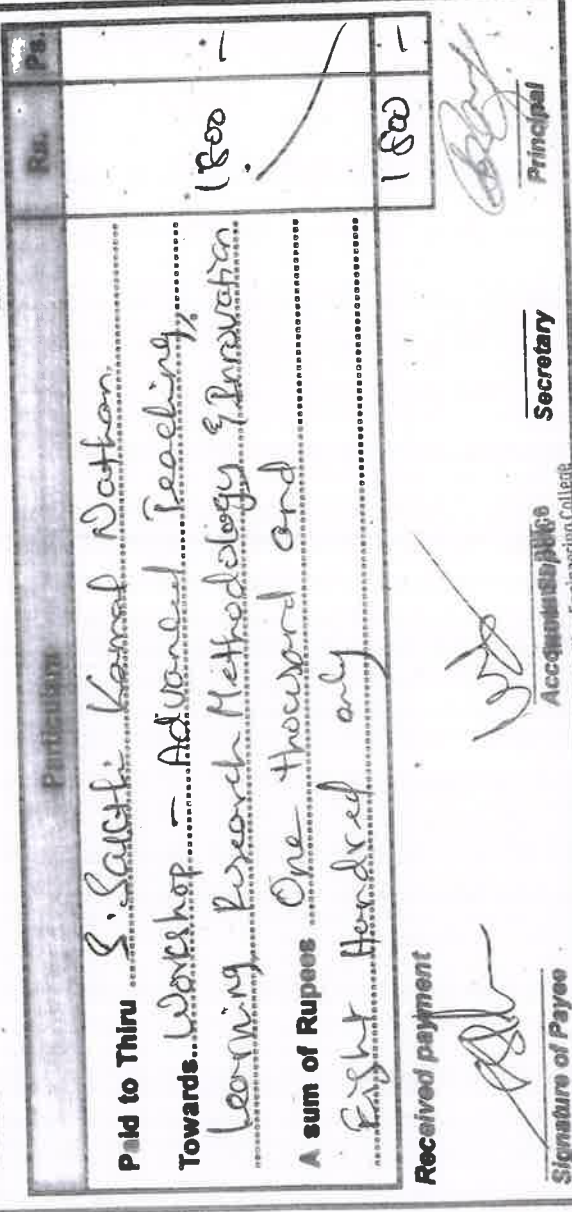 Particulars Rs. Ps.
Paid to Thiru S. Sakthi Kamal Nathan
Towards Workshop - Advanced Teaching, 1800 -
Learning Research Methodology & Innovation
A sum of Rupees One thousand and
Eight Hundred only 1800 -
Received payment
Signature of Payee Secretary Principal
Engineering College